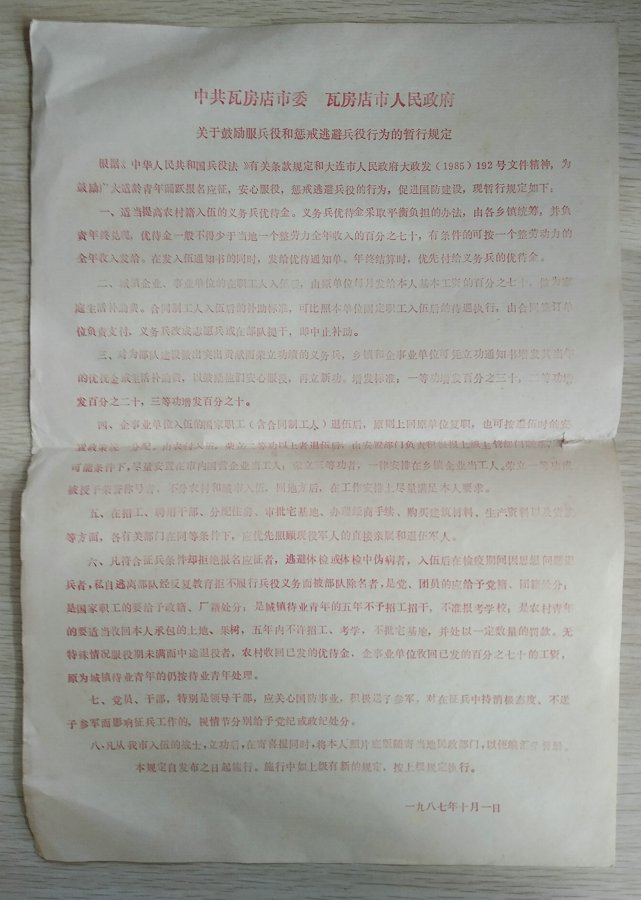 中共瓦房店市委　瓦房店市人民政府
关于鼓励服兵役和惩戒逃避兵役行为的暂行规定
根据《中华人民共和国兵役法》有关条款规定和大连市人民政府大政发（1985）192号文件精神，为
鼓励广大适龄青年踊跃报名应征，安心服役，惩戒逃避兵役的行为，促进国防建设，现暂行规定如下：
一、适当提高农村籍入伍的义务兵优待金。义务兵优待金采取平衡负担的办法，由各乡镇统筹，并负
责年终兑现，优待金一般不得少于当地一个整劳力全年收入的百分之七十，有条件的可按一个整劳动力的
全年收入发给。在发入伍通知书的同时，发给优待通知单。年终结算时，优先付给义务兵的优待金。
二、城镇企业、事业单位的在职工人入伍后，由原单位每月发给本人基本工资的百分之七十，做为家
庭生活补助费。合同制工人入伍后的补助标准，可比照本单位固定职工入伍后的待遇执行，由合同签订单
位负责支付，义务兵改成志愿兵或在部队提干，即中止补助。
三、对为部队建设做出突出贡献而荣立功绩的义务兵，乡镇和企事业单位可凭立功通知书增发其当年
的优待金或生活补助费，以鼓励他们安心服役，再立新功。增发标准：一等功增发百分之三十，二等功增
发百分之二十，三等功增发百分之十。
四、企事业单位入伍的国家职工（含合同制工人）退伍后，原则上回原单位复职，也可按退伍时的安
置政策统一分配。由农村入伍，荣立二等功以上者退伍后，由安置部门负责积极报上级主管部门
可能条件下，尽量安置在市内国营企业当工人；荣立三等功者，一律安排在乡镇企业当工人。荣立一等功或
被授予荣誉称号者，不分农村和城市入伍，回地方后，在工作安排上尽量满足本人要求。
五、在招工、聘用干部、分配住房、审批宅基地、办理经商手续、购买建筑材料、生产资料以及贷款
等方面，各有关部门在同等条件下，应优先照顾现役军人的直接亲属和退伍军人。
六、凡符合征兵条件却拒绝报名应征者，逃避体检或体检中伪病者，入伍后在检疫期间因思想问题退
兵者，私自逃离部队经反复教育拒不履行兵役义务而被部队除名者，是党、团员的应给予党籍、团籍处分；
是国家职工的要给予政籍、厂籍处分；是城镇待业青年的五年不予招工招干，不准报考学校；是农村青年
的要适当收回本人承包的土地、果树，五年内不许招工、考学，不批宅基地，并处以一定数量的罚款。无
特殊情况服役期未满而中途退役者，农村收回已发的优待金，企事业单位收回已发的百分之七十的工资，
原为城镇待业青年的仍按待业青年处理。
七、党员、干部，特别是领导干部，应关心国防事业，积极送子参军，对在征兵中持消极态度、不送
子参军而影响征兵工作的，视情节分别给予党纪或政纪处分。
八、凡从我市入伍的战士，立功后，在寄喜报同时，将本人照片底版随寄当地民政部门，以便编汇
本规定自发布之日起施行。施行中如上级有新的规定，按上级规定执行。
一九八七年十月一日